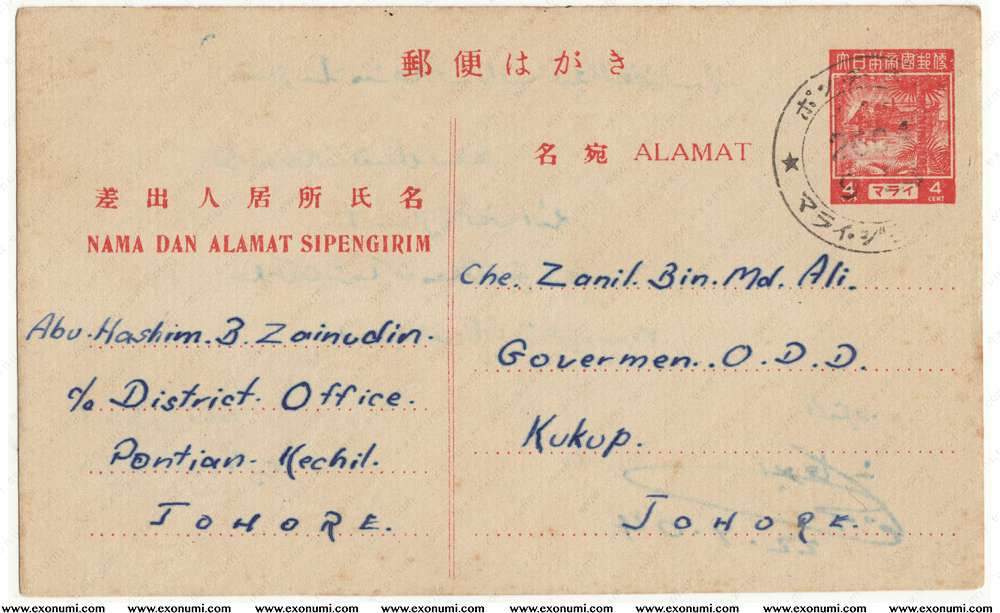 郵便はがき
大日本帝國郵便
4 マライ 4
CENT CENT
名宛 ALAMAT
差出人居所氏名
NAMA DAN ALAMAT SIPENGIRIM
Abu. Hashim. B. Zainudin.
c/o District. Office.
Pontian. Kechil.
JOHORE.
Che. Zanil. Bin. Md. Ali.
Govermen.. O. D. D.
Kukup.
JOHORE.
www.exonumi.com www.exonumi.com www.exonumi.com www.exonumi.com www.exonumi.com www.exonumi.com www.exonumi.com www.exonumi.com